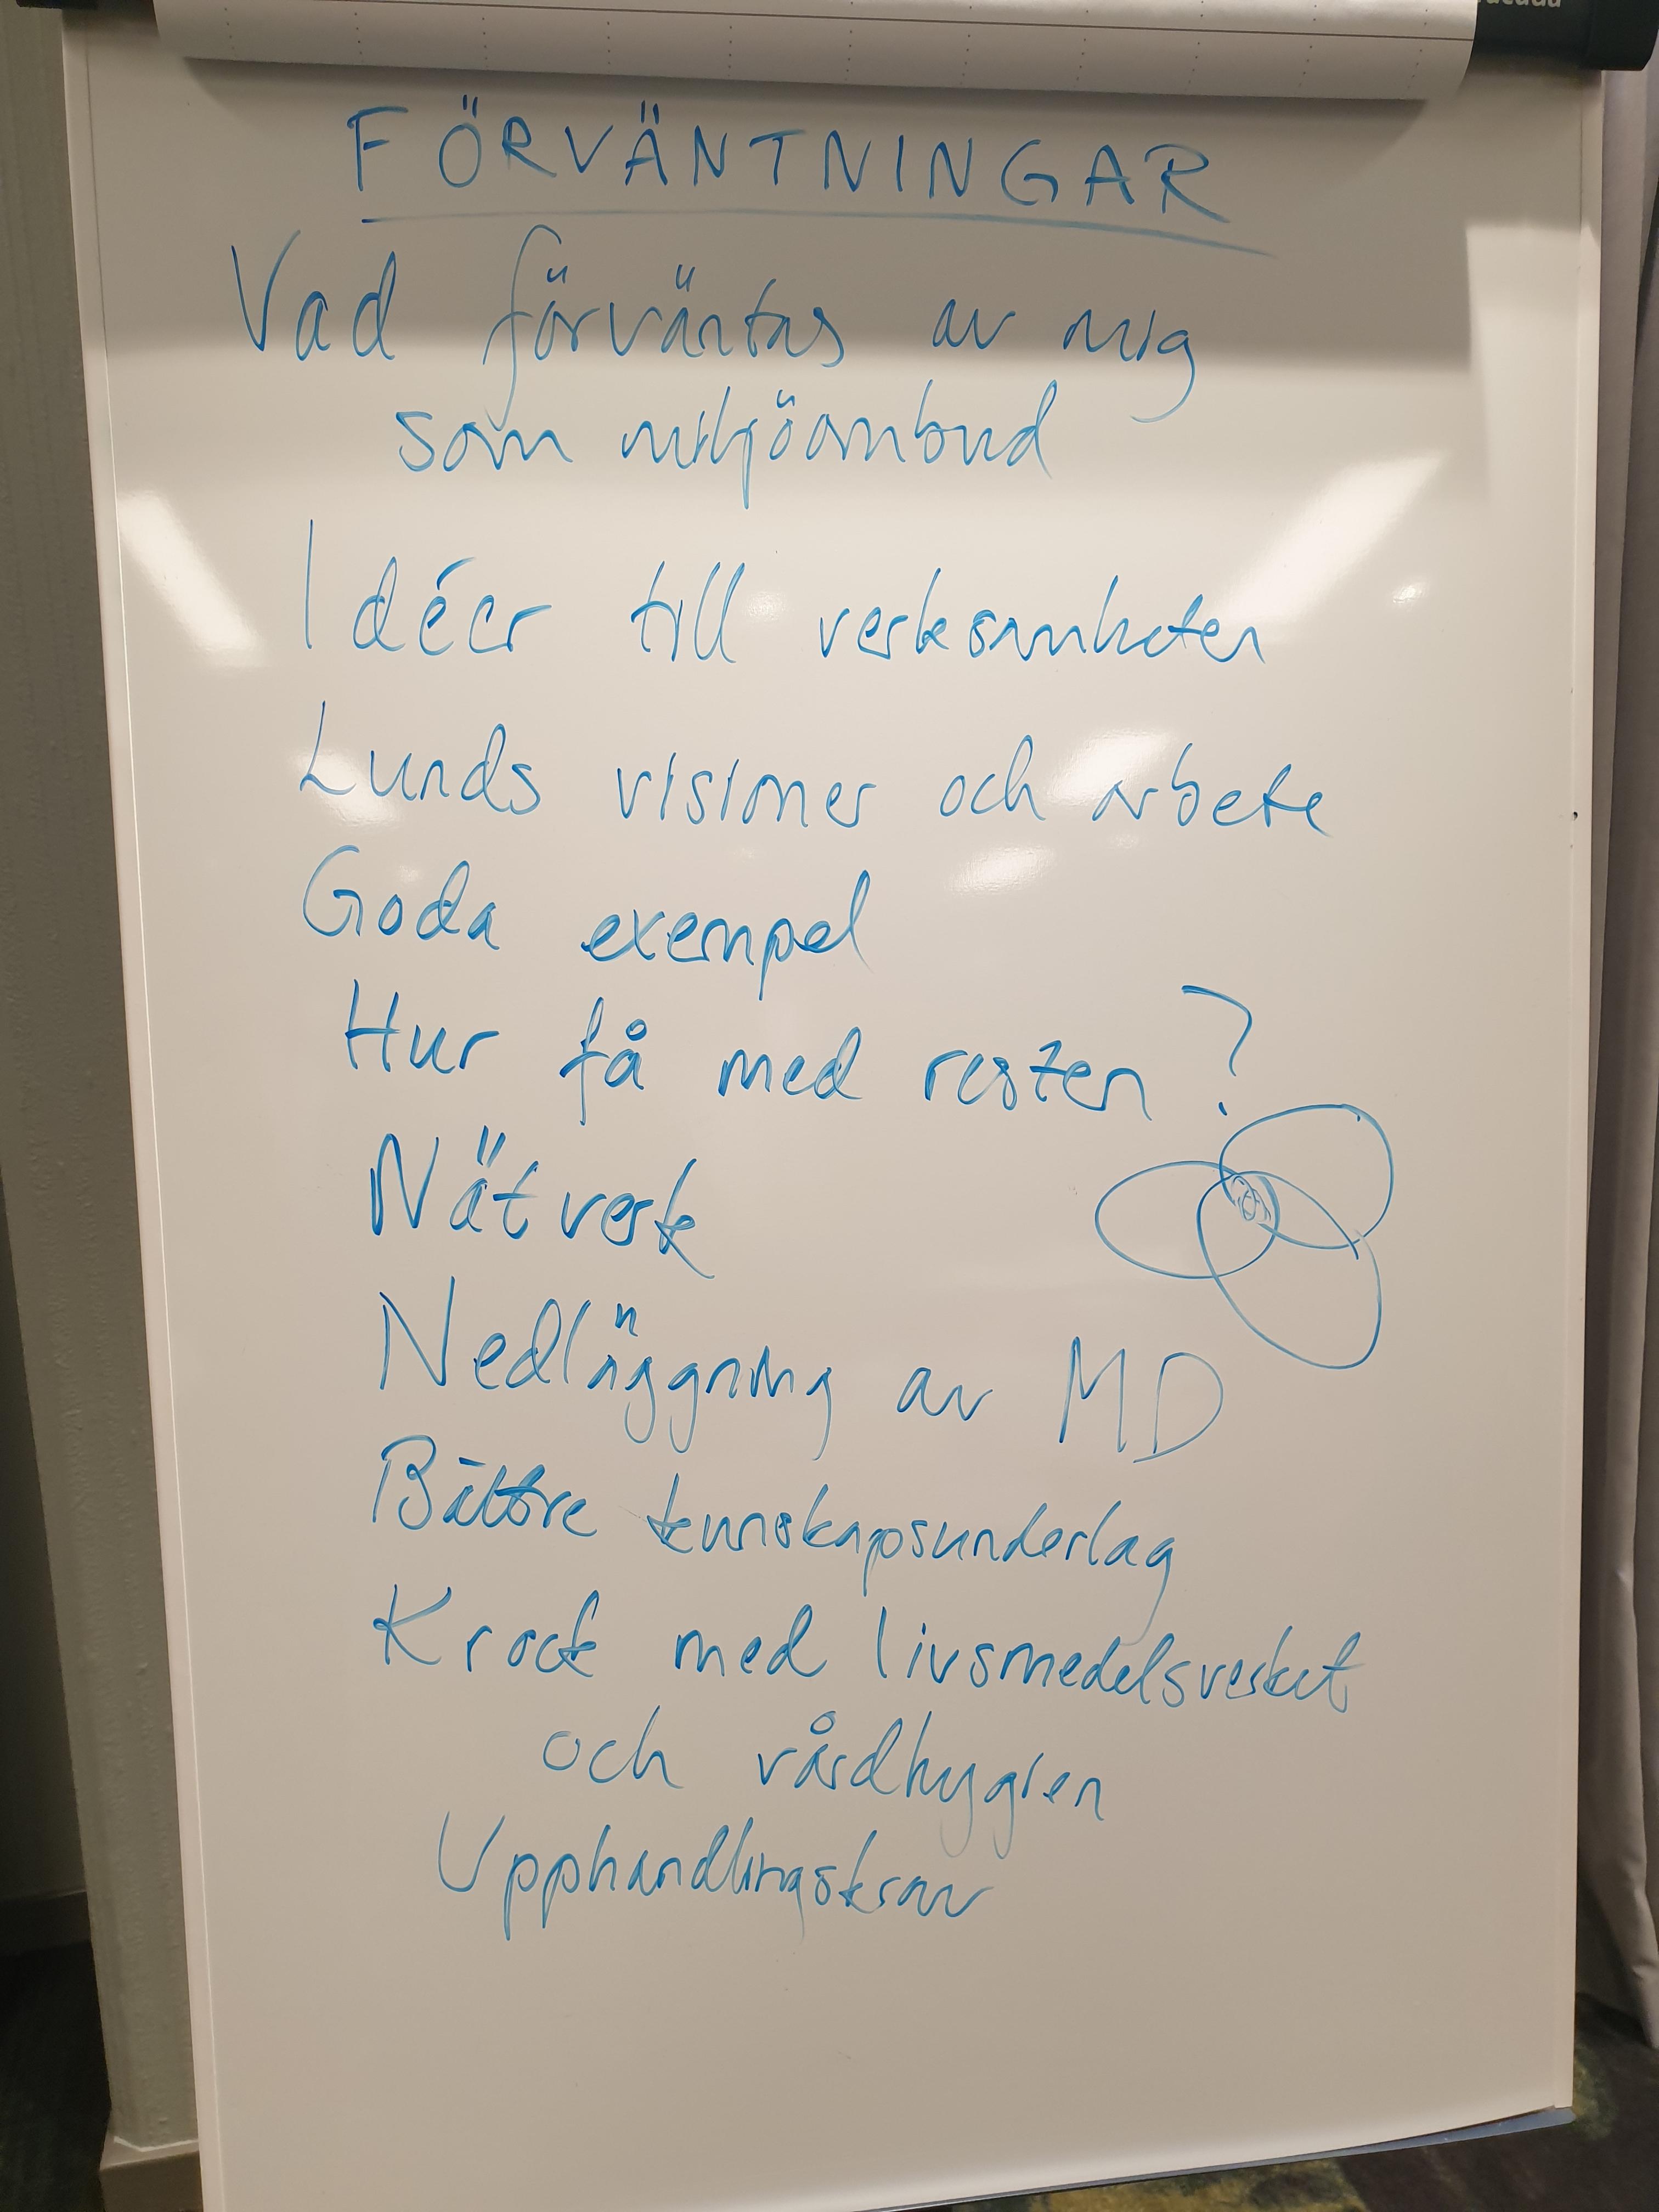 FÖRVÄNTNINGAR
Vad förväntas av mig
som miljöombud
Idéer till verksamheten
Lunds visioner och arbete
Goda exempel
Hur få med resten?
Nätverk
Nedläggning av MD
Bättre kunskapsunderlag
Krock med livsmedelsverket
och vårdhygien
Upphandlingskrav